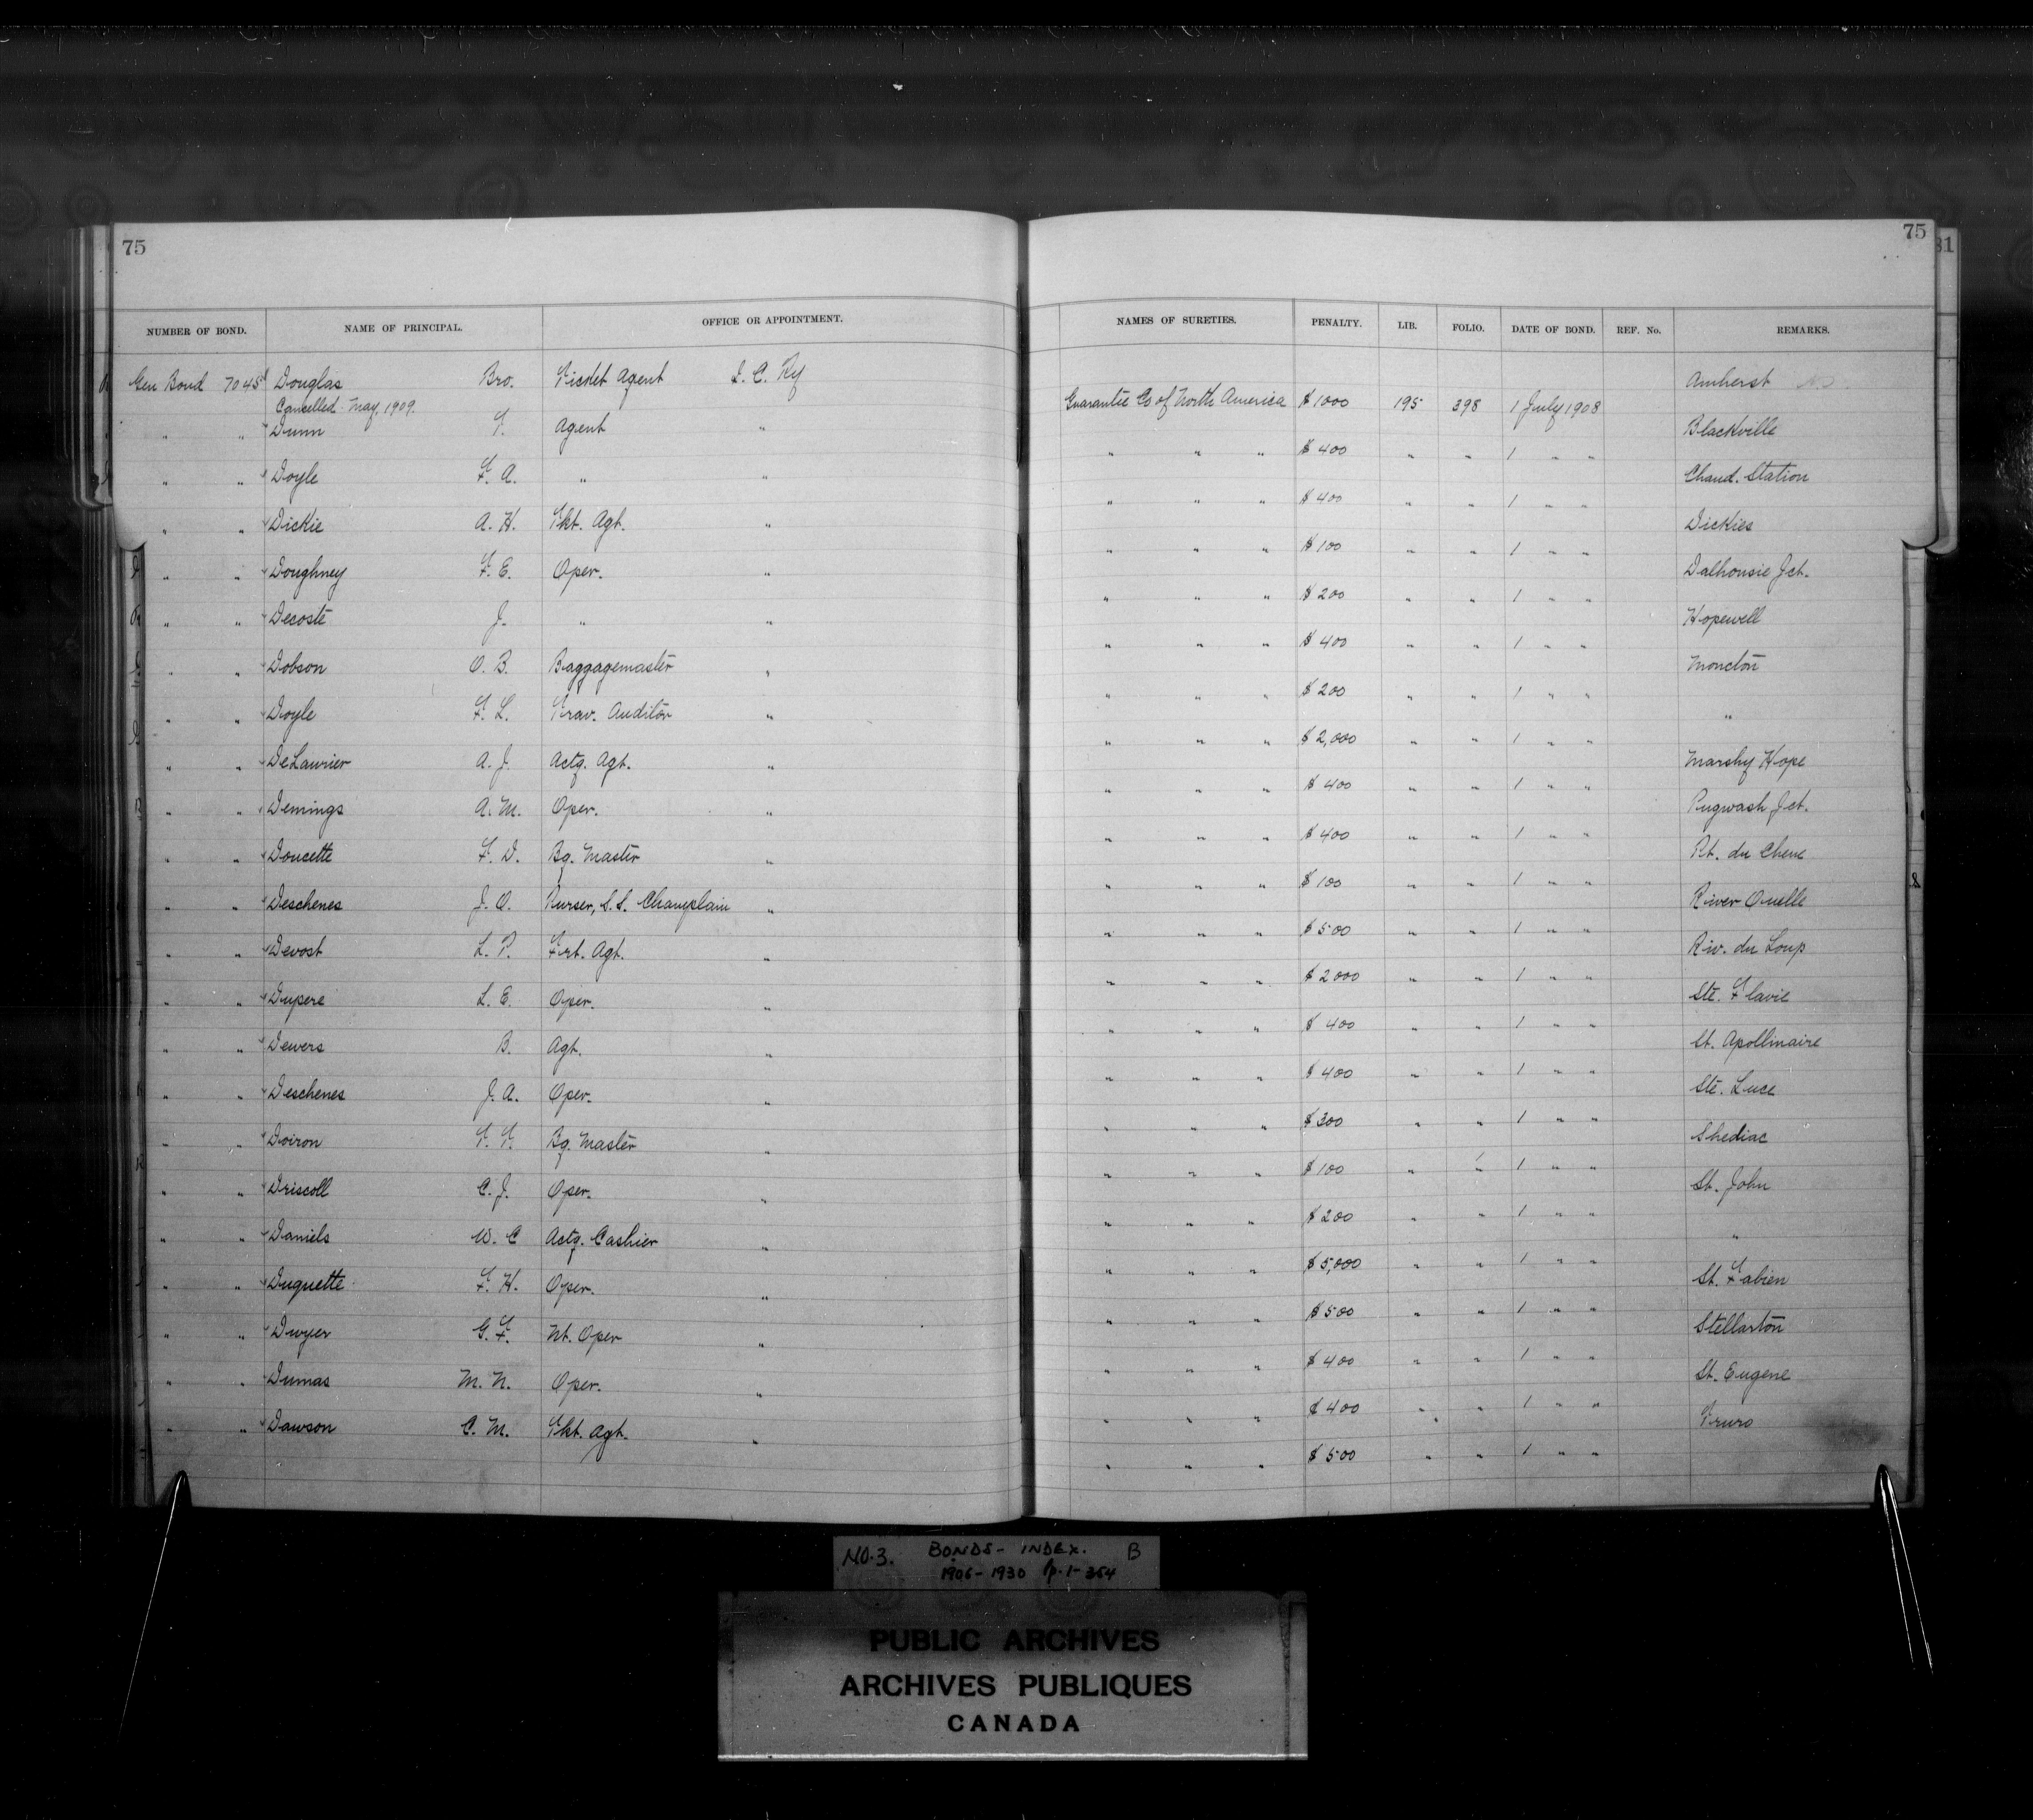 75 75 81
NUMBER OF BOND. NAME OF PRINCIPAL. OFFICE OR APPOINTMENT. NAMES OF SURETIES. PENALTY. LIB. FOLIO. DATE OF BOND. REF. No. REMARKS.
Gen Bond 7045 Douglas Bro. Ticket Agent I. C. Ry Guarantee Co of North America $1000 195 398 1 July 1908 Amherst
Cancelled May 1909.
" " Dunn T. Agent " " " " $400 " " 1 " " Blackville
" " Doyle F. A. " " " " " $400 " " 1 " " Chaud. Station
" " Dickie A. H. Tkt. Agt. " " " " $100 " " 1 " " Dickies
" " Doughney F. E. Oper. " " " " $200 " " 1 " " Dalhousie Jct.
" " Decoste J. " " " " " $400 " " 1 " " Hopewell
" " Dobson O. B. Baggagemaster " " " " $200 " " 1 " " Moncton
" " Doyle F. L. Trav. Auditor " " " " $2,000 " " 1 " " "
" " DeLaurier A. J. Actg. Agt. " " " " $400 " " 1 " " Marshy Hope
" " Demings A. M. Oper. " " " " $400 " " 1 " " Pugwash Jct.
" " Doucette F. D. Bg. Master " " " " $100 " " 1 " " Pt. du Chene
" " Deschenes J. O. Purser, S.S. Champlain " " " " $500 " " 1 " " River Ouelle
" " Devost L. P. Frt. Agt. " " " " $2000 " " 1 " " Riv. du Loup
" " Dupere L. E. Oper. " " " " $400 " " 1 " " Ste. Flavie
" " Dewers B. Agt. " " " " $400 " " 1 " " St. Apollinaire
" " Deschenes J. A. Oper. " " " " $300 " " 1 " " Ste. Luce
" " Doiron T. T. Bg. Master " " " " $100 " " 1 " " Shediac
" " Driscoll C. J. Oper. " " " " $200 " " 1 " " St. John
" " Daniels W. C Actg. Cashier " " " " $5,000 " " 1 " " "
" " Duquette F. H. Oper. " " " " $500 " " 1 " " St. Fabien
" " Dwyer G. F. Nt. Oper " " " " $400 " " 1 " " Stellarton
" " Dumas M. N. Oper. " " " " $400 " " 1 " " St. Eugene
" " Dawson C. M. Tkt. Agt. " " " " $500 " " 1 " " Truro
NO. 3. BONDS - INDEX. B
1906 - 1930 p. 1 - 354
PUBLIC ARCHIVES
ARCHIVES PUBLIQUES
CANADA